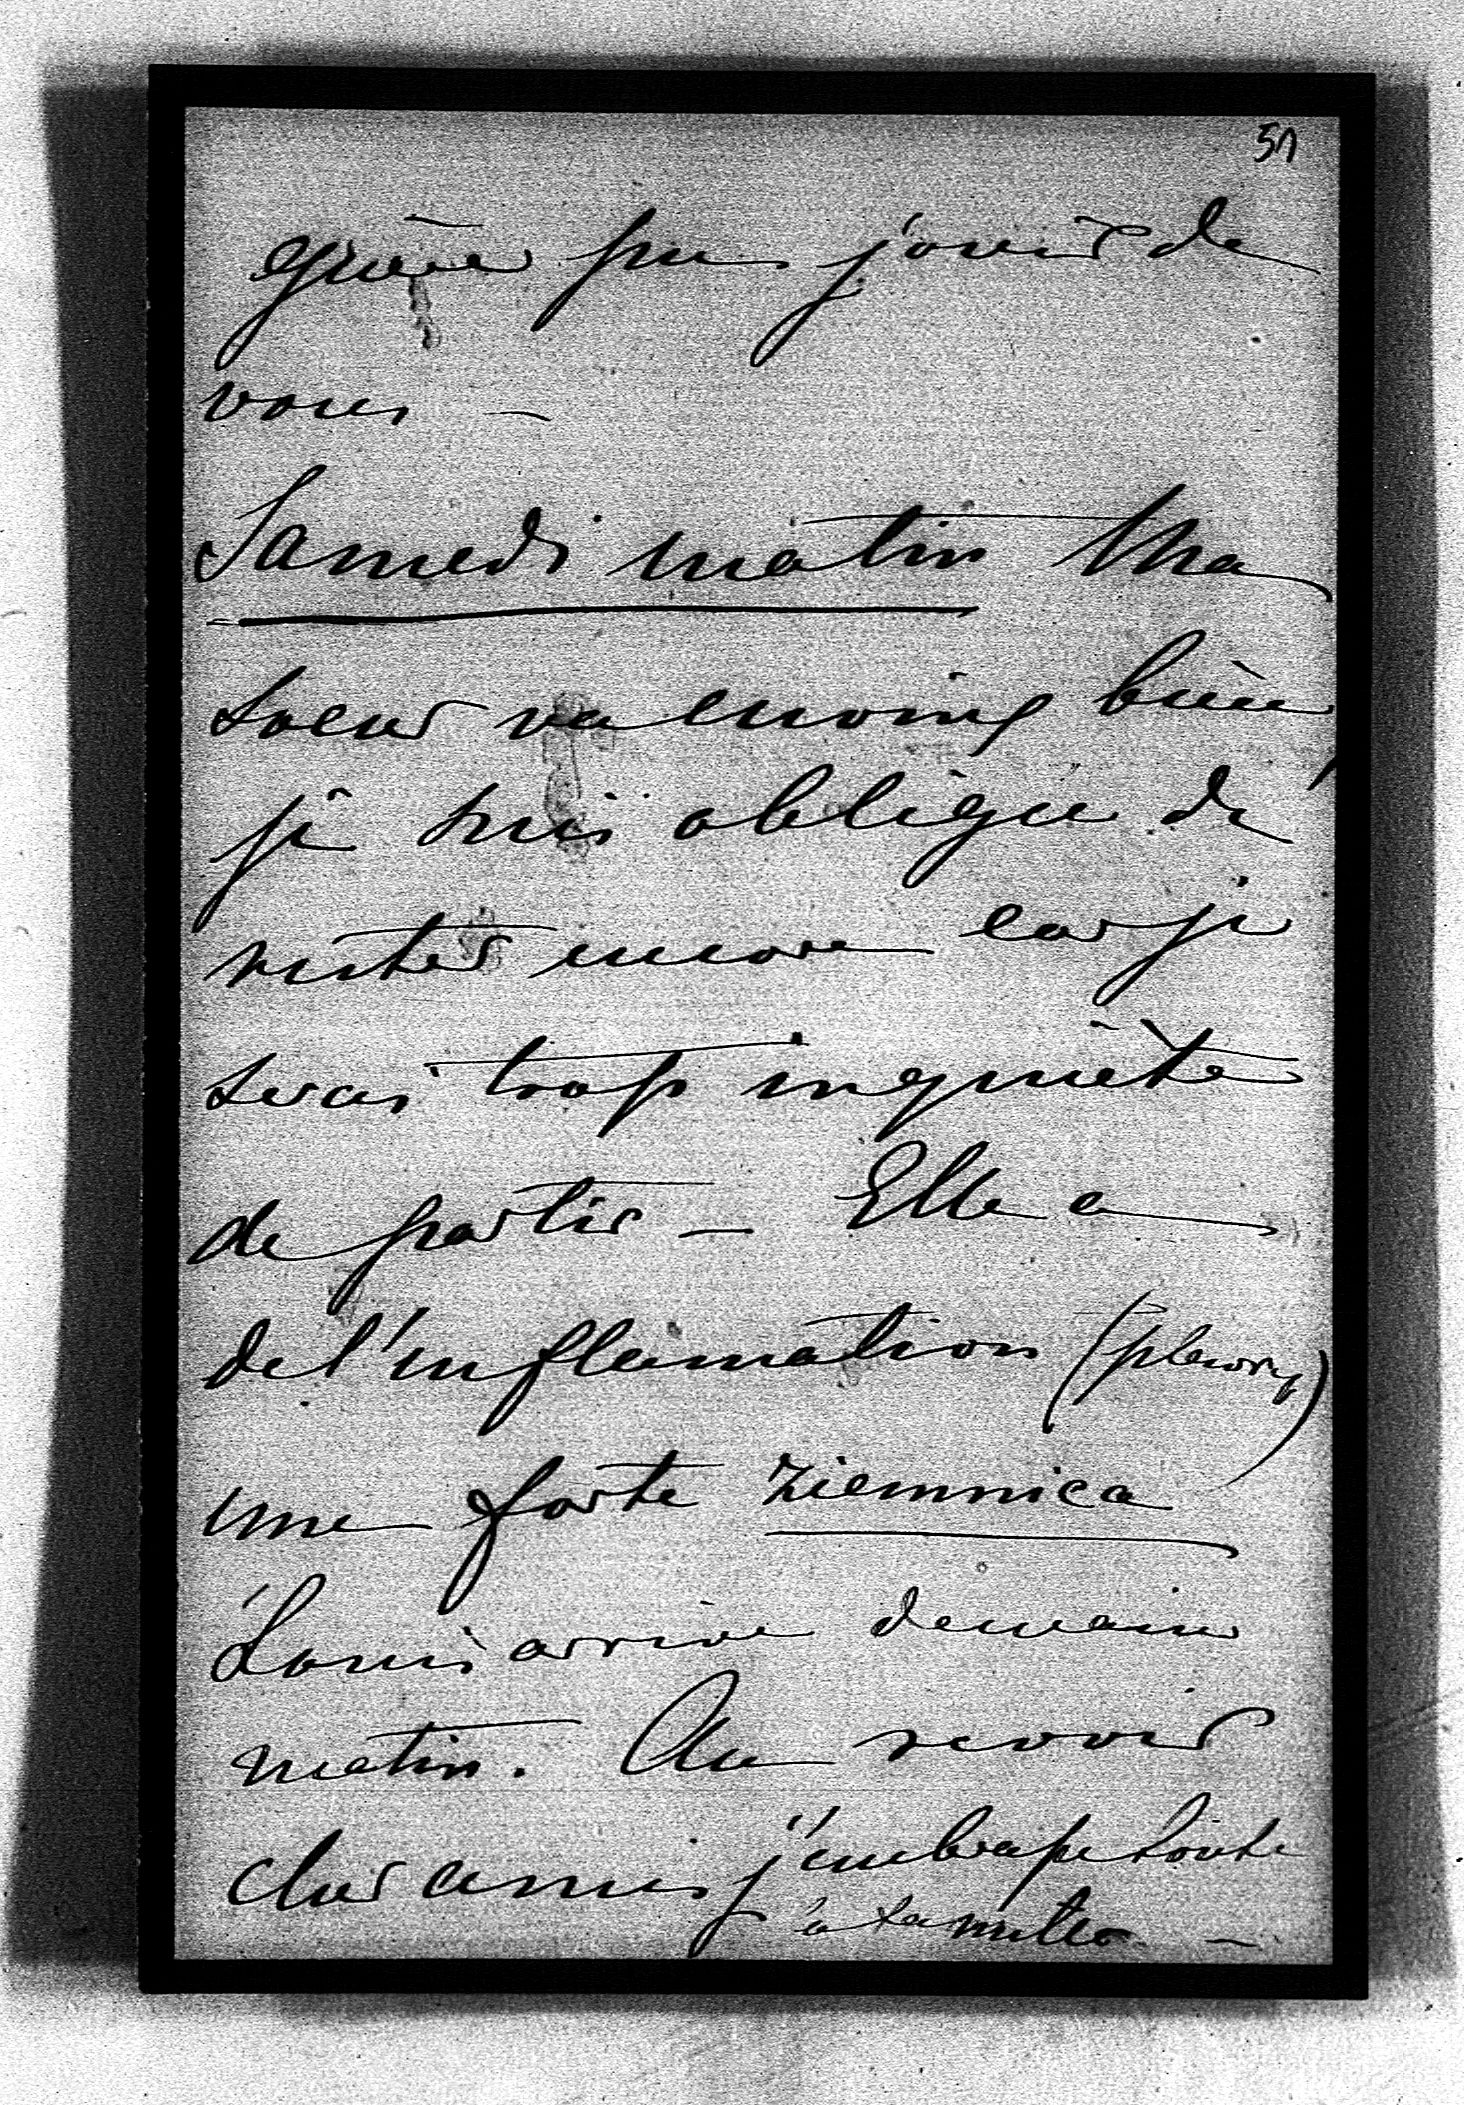 51
guère pu jouir de
vous —
Samedi matin Ma
soeur va moins bien
je suis obligée de
rester encore car je
serai trop inquiète
de partir — Elle a
de l'inflamation (pleury)
une forte zimnica
Louis arrive demain
matin. Au revoir
cher amis j'embrasse toute
la